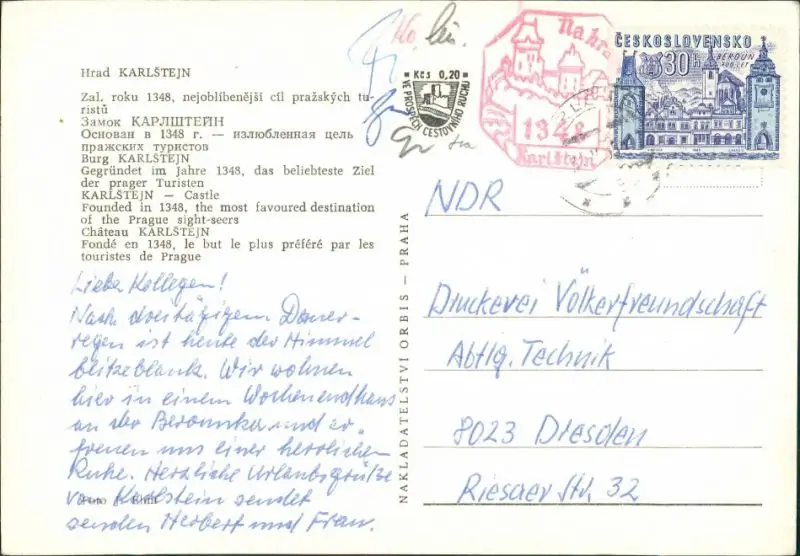 Hrad KARLŠTEJN
Zal. roku 1348, nejoblíbenější cíl pražských tu-
ristů
Замок КАРЛШТЕЙН
Основан в 1348 г. — излюбленная цель
пражских туристов
Burg KARLŠTEJN
Gegründet im Jahre 1348, das beliebteste Ziel
der prager Turisten
KARLŠTEJN — Castle
Founded in 1348, the most favoured destination
of the Prague sight-seers
Château KARLŠTEJN
Fondé en 1348, le but le plus préféré par les
touristes de Prague
Liebe Kollegen!
Nach dreitägigem Dauer-
regen ist heute der Himmel
blitzeblank. Wir wohnen
hier in einem Wochenendhaus
an der Berounka und er-
freuen uns einer herrlichen
Ruhe. Herzliche Urlaubsgrüße
von Karlstein sendet
senden Herbert und Frau.
NAKLADATELSTVÍ ORBIS — PRAHA
Kčs 0,20
VE PROSPĚCH CESTOVNÍHO RUCHU
Na hra
1348
Karlštejn
ČESKOSLOVENSKO
30 h
BEROUN
700 LET
NDR
Druckerei Völkerfreundschaft
Abtlg. Technik
8023 Dresden
Riesaer Str. 32